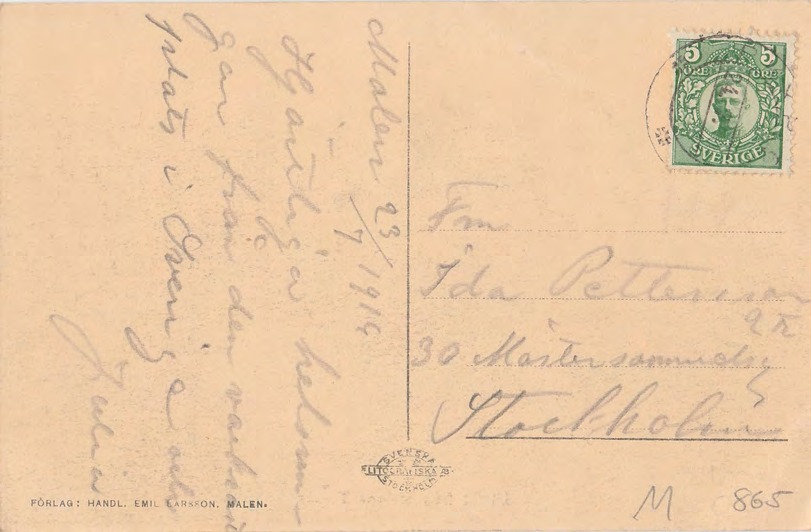 Malen 23/7 1914
Hjärtliga helsnin-
gar från den vackraste
plats i Sverige
Julia
5 5
ÖRE ÖRE
SVERIGE
Frn
Ida Pettersson
30 Mäster Samuelsg
Stockholm
SVENSKA
LITOGRAFISKA AB.
STOCKHOLM
FÖRLAG: HANDL. EMIL LARSSON, MALEN.
M 865